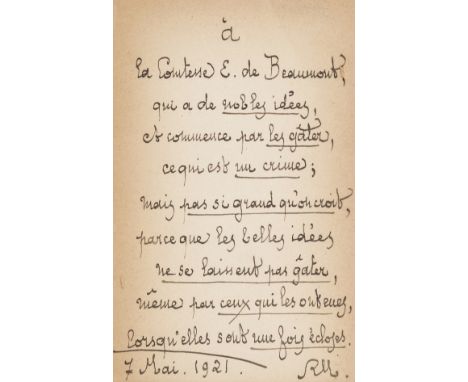 à
la Comtesse E. de Beaumont,
qui a de nobles idées,
et commence par les gâter,
ce qui est un crime;
mais pas si grand qu'on croit,
parce que les belles idées
ne se laissent pas gâter,
même par ceux qui les ont eues,
lorsqu'elles sont une fois écloses.
7 Mai. 1921. RM.